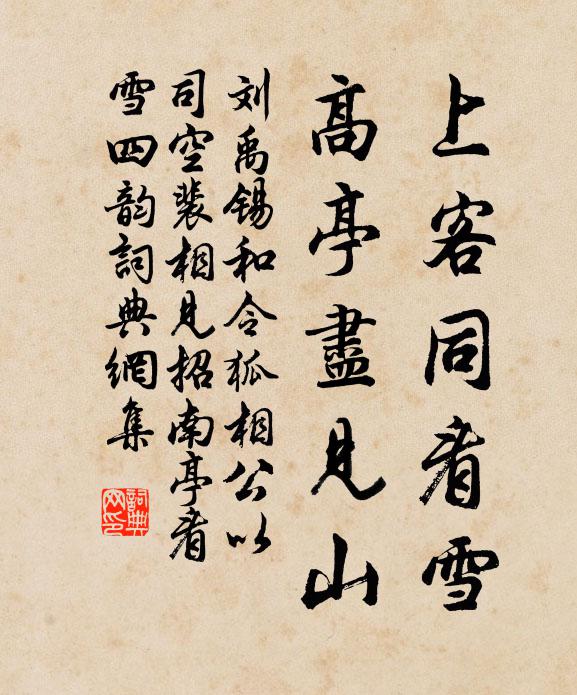 上客同看雪
高亭盡見山
刘禹锡和令狐相公以
司空裴相見招南亭看
雪四韵詞典網集
詞典
网印